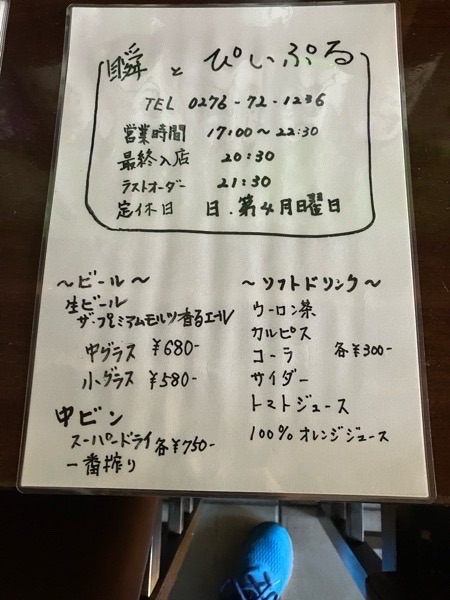 瞬とぴいぷる
TEL 0276-72-1236
営業時間 17:00～22:30
最終入店 20:30
ラストオーダー 21:30
定休日 日.第4月曜日
～ビール～
生ビール
ザ・プレミアムモルツ香るエール
中グラス ¥680-
小グラス ¥580-
中ビン
スーパードライ
一番搾り
各¥750-
～ソフトドリンク～
ウーロン茶
カルピス
コーラ
サイダー
トマトジュース
100%オレンジジュース
各¥300-